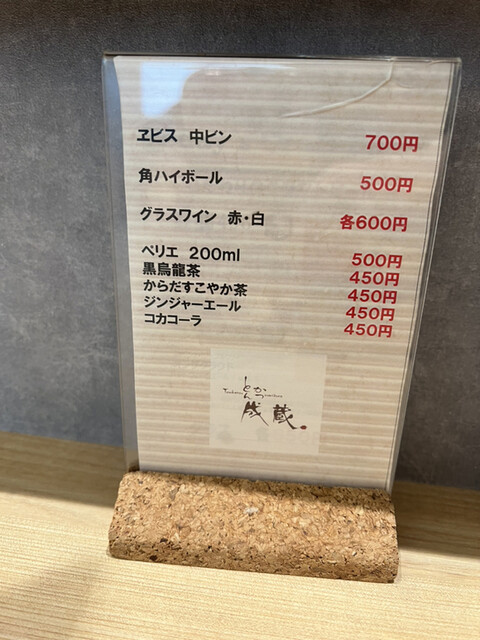 ヱビス 中ビン 700円
角ハイボール 500円
グラスワイン 赤・白 各600円
ペリエ 200ml 500円
黒烏龍茶 450円
からだすこやか茶 450円
ジンジャーエール 450円
コカコーラ 450円
とんかつ
蔵